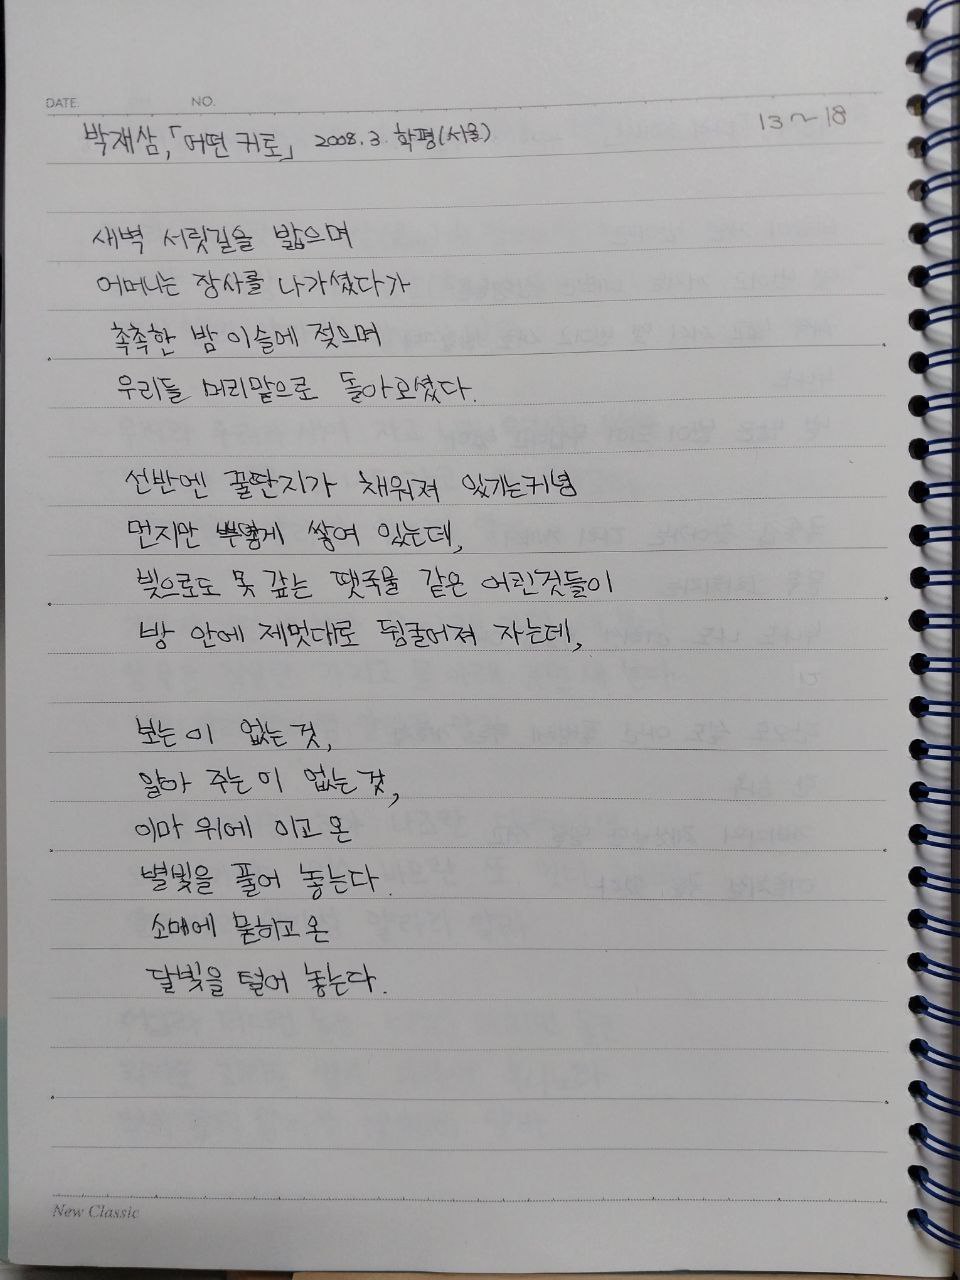 DATE. NO.
박재삼, 「어떤 귀로」 2008.3. 학평(서울) 13~18
새벽 서릿길을 밟으며
어머니는 장사를 나가셨다가
촉촉한 밤이슬에 젖으며
우리들 머리맡으로 돌아오셨다.
선반엔 꿀단지가 채워져 있기는커녕
먼지만 부옇게 쌓여 있는데,
빚으로도 못 갚는 땟국물 같은 어린것들이
방 안에 제멋대로 뒹굴어져 자는데,
보는 이 없는 것,
알아 주는 이 없는 것,
이마 위에 이고 온
별빛을 풀어 놓는다.
소매에 묻히고 온
달빛을 털어 놓는다.
New Classic